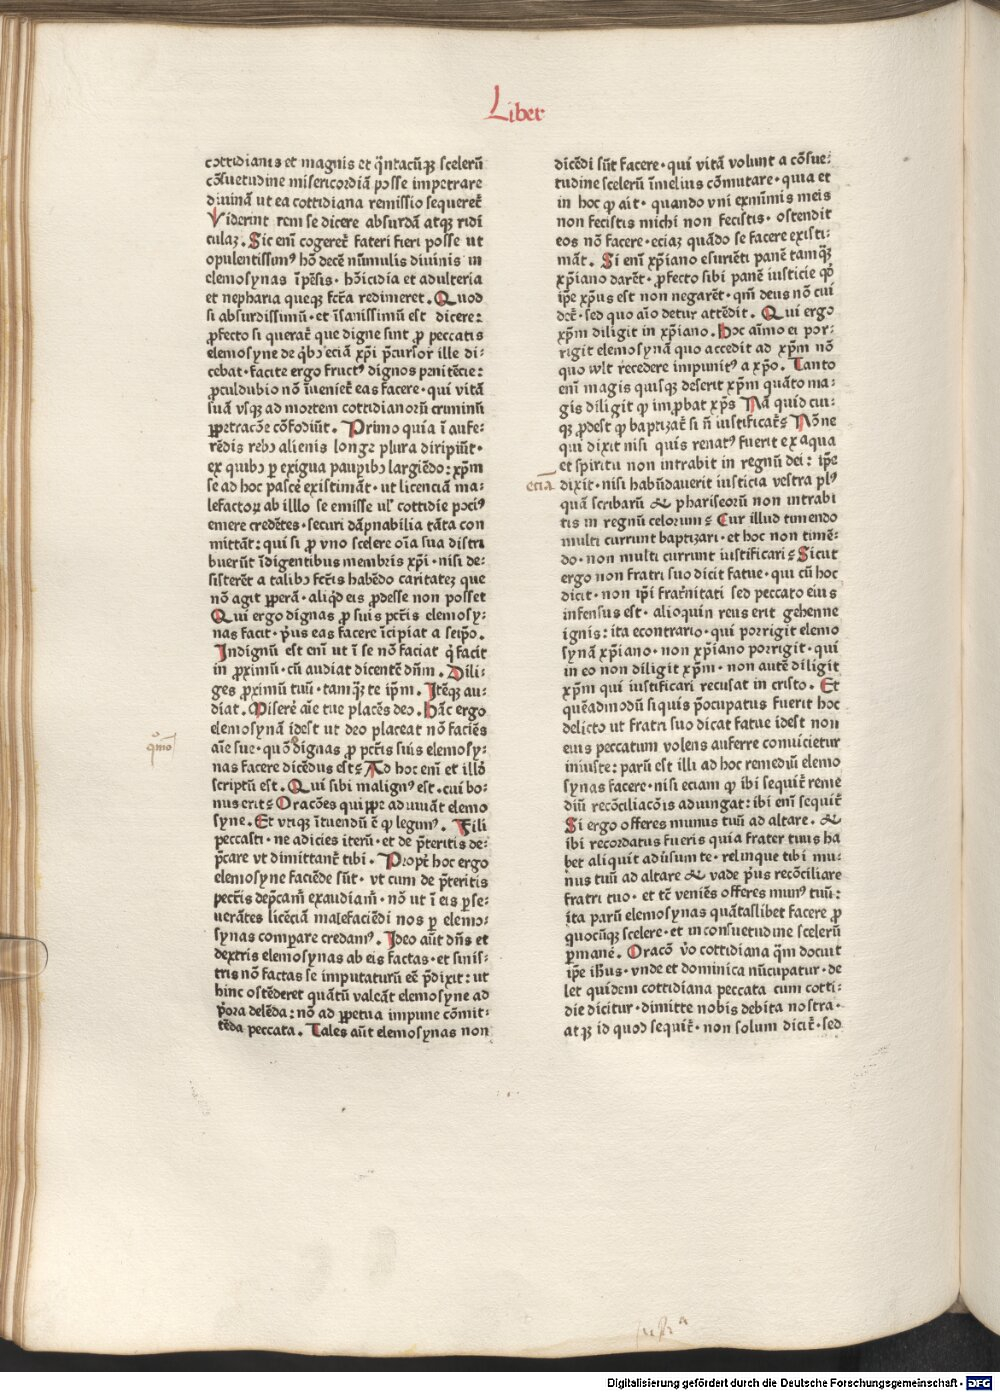 Liber
cottidianis et magnis et q̄ntacūqꝫ scelerū
cōsuetudine misericordiā posse impetrare
diuinā ut ea cottidiana remissio sequeret᷑
Viderint rem se dicere absurdā atqꝫ ridi
culaꝫ. Sic enī cogeret᷑ fateri fieri posse ut
opulentissimꝰ hō decē nūmulis diuinis in
elemosynas īpēsis · hōicidia et adulteria
et nepharia queqꝫ fctā redimeret. Quod
si absurdissimū · et īsanissimū est dicere:
ꝓfecto si querat᷑ que digne sint ꝓ peccatis
elemosyne de q̄bꝫ eciā xp̄i p̄cursor ille di-
cebat · facite ergo fructꝰ dignos penitēcie:
ꝓculdubio nō īueniet᷑ eas facere · qui vitā
suā vsqꝫ ad mortem cottidianorū criminū
ꝑpetracōe cōfodiūt. Primo quia ī aufe-
rēdis rebꝫ alienis longe plura diripiūt ·
ex quibꝫ ꝑ exigua paupibꝫ largiēdo: xp̄m
se ad hoc pascē existimāt · ut licenciā ma-
lefactoꝝ ab illlo se emisse ul᷑ cottidie pociꝰ
emere credētes · securi dāpnabilia tāta con
mittāt: qui si ꝓ vno scelere oīa sua distri
buerūt īdigentibus membris xp̄i · nisi de-
sisterēt a talibꝫ fctīs habēdo caritateꝫ que
nō agit ꝑperā · aliqd̄ eis ꝓdesse non posset
Qui ergo dignas ꝓ suis pctīs elemosy-
nas facit · pꝰus eas facere īcipiat a seip̄o.
Indignū est enī ut ī se nō faciat q̄ facit
in ꝓximū · cū audiat dicentē dn̄m. Dili-
ges ꝓximū tuū · tamqꝫ te ip̄m. Itēqꝫ au-
diat. Miserē aīe tue placēs deo. Hāc ergo
elemosynā idest ut deo placeat nō faciēs
qōmō
aīe sue · quō dignas ꝓ pctīs suis elemosy-
nas facere dicēdus est? Ad hoc enī et illō
scriptū est. Qui sibi malignꝰ est · cui bo-
nus erit? Oracōes quippe adiuuāt elemo
syne. Et vtiqꝫ ītuendū ē ꝙ legimꝰ. Fili
peccasti · ne adicies iterū · et de p̄teritis de-
p̄care vt dimittant᷑ tibi. Propt᷑ hoc ergo
elemosyne faciēde sūt · vt cum de p̄teritis
pectīs dep̄cam᷑ exaudiam᷑ · nō ut ī eis ꝑse-
uerātes licēciā malefaciēdi nos ꝑ elemo-
synas comparare credamꝰ. Ideo aūt dn̄s et
dextris elemosynas ab eis factas · et sinis-
tris nō factas se imputaturū eē p̄dixit: ut
hinc ostēderet quātū valeāt elemosyne ad
p̄ora delēda: nō ad ꝑpetua impune cōmit-
tēda peccata. Tales aūt elemosynas non
dicēdi sūt facere · qui vitā volunt a cōsue-
tudine scelerū īmelius cōmutare · quia et
in hoc ꝙ ait · quando vni exmīmis meis
non fecistis michi non fecistis · ostendit
eos nō facere · eciaꝫ quādo se facere existi-
māt. Si enī xp̄iano esuriēti panē tamqꝫ
xp̄iano darēt · ꝓfecto sibi panē iusticie qd̄
ip̄e xp̄us est non negarēt · qm̄ deus nō cui
det᷑ · sed quo aīo detur attēdit. Qui ergo
xp̄m diligit in xp̄iano. Hoc aīmo ei por-
rigit elemosynā quo accedit ad xp̄m nō
quo wlt recedere impunitꝰ a xp̄o. Tanto
enī magis quisqꝫ deserit xp̄m quāto ma-
gis diligit ꝙ improbat xp̄s Nā quid cui-
qꝫ ꝓdest ꝙ baptizat᷑ si n̄ iustificat᷑? Nōne
qui dixit nisi quis renatꝰ fuerit ex aqua
et spiritu non intrabit in regnū dei: ip̄e
eciā
dixit · nisi habūdauerit iusticia vestra plꝰ
quā scribarū & phariseorū non intrabi
tis in regnū celorum? Cur illud timendo
multi currunt baptizari · et hoc non timē-
do · non multi currunt iustificari? Sicut
ergo non fratri suo dicit fatue · qui cū hoc
dicit · non ip̄i frat᷑nitati sed peccato eius
infensus est · alioquin reus erit gehenne
ignis: ita econtrario · qui porrigit elemo
synā xp̄iano · non xp̄iano porrigit · qui
in eo non diligit xp̄m · non autē diligit
xp̄m qui iustificari recusat in cristo. Et
quēadmodū si quis p̄ocupatus fuerit hoc
delicto ut fratri suo dicat fatue idest non
eius peccatum volens auferre conuicietur
iniuste: parū est illi ad hoc remediū elemo
synas facere · nisi eciam ꝙ ibi sequit᷑ reme
diū recōciliacōis adiungat: ibi enī sequit᷑
Si ergo offeres munus tuū ad altare. &
ibi recordatus fueris quia frater tuus ha
bet aliquit adūsum te · relinque tibi mu-
nus tuū ad altare & vade pꝰus recōciliare
fratri tuo · et tc̄ veniēs offeres munꝰ tuū:
ita parū elemosynas quātaslibet facere ꝓ
quocūqꝫ scelere · et in consuetudine scelerū
ꝑmanē. Oracō v̄o cottidiana qm̄ docuit
ip̄e ih̄us · vnde et dominica nūcupatur · de
let quidem cottidiana peccata cum cotti-
die dicitur · dimitte nobis debita nostra ·
atqꝫ id quod sequit᷑ · non solum dicit᷑ · sed
Digitalisierung gefördert durch die Deutsche Forschungsgemeinschaft - DFG